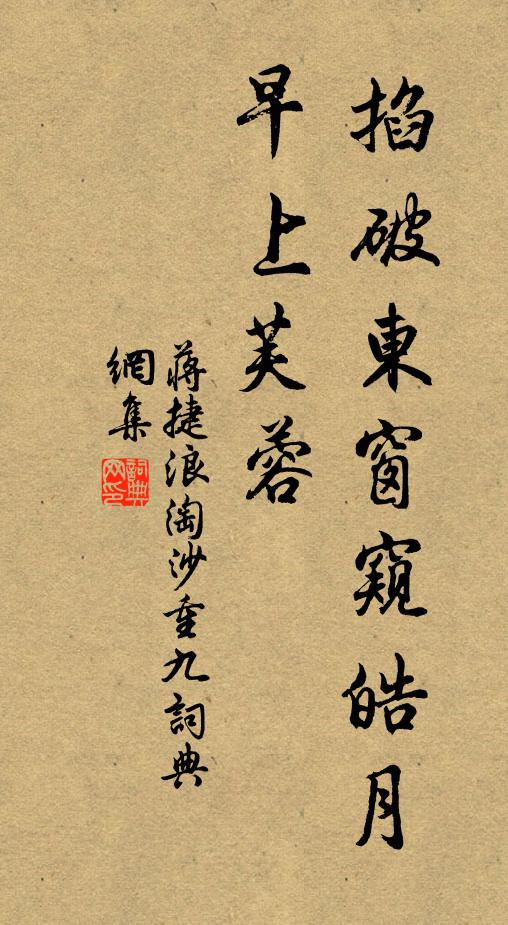 掐破東窗窺皓月
早上芙蓉
蔣捷浪淘沙重九詞典
網集
詞典網印